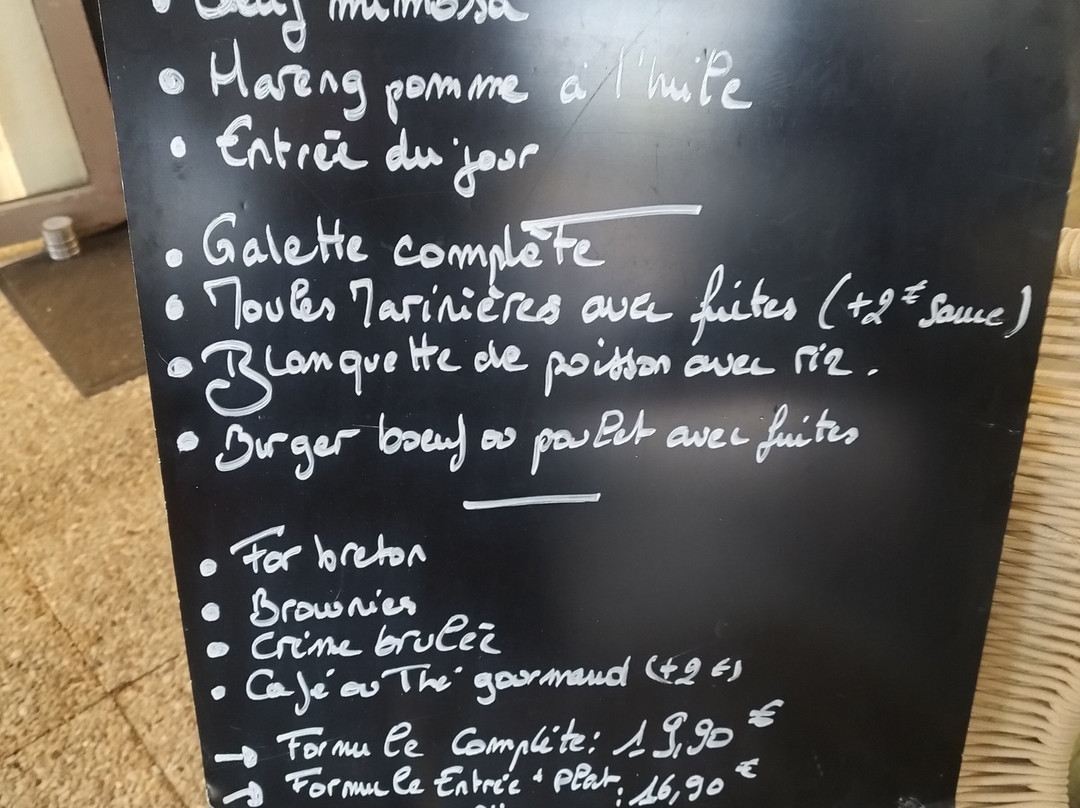 Oeuf mimosa
• Hareng pomme à l'huile
• Entrée du jour
• Galette complète
• Moules Marinières avec frites (+2€ sauce)
• Blanquette de poisson avec riz.
• Burger boeuf ou poulet avec frites
• Far breton
• Brownies
• Crème brulée
• Café ou Thé gourmand (+2€)
→ Formule Complète: 19,90€
→ Formule Entrée + Plat: 16,90€